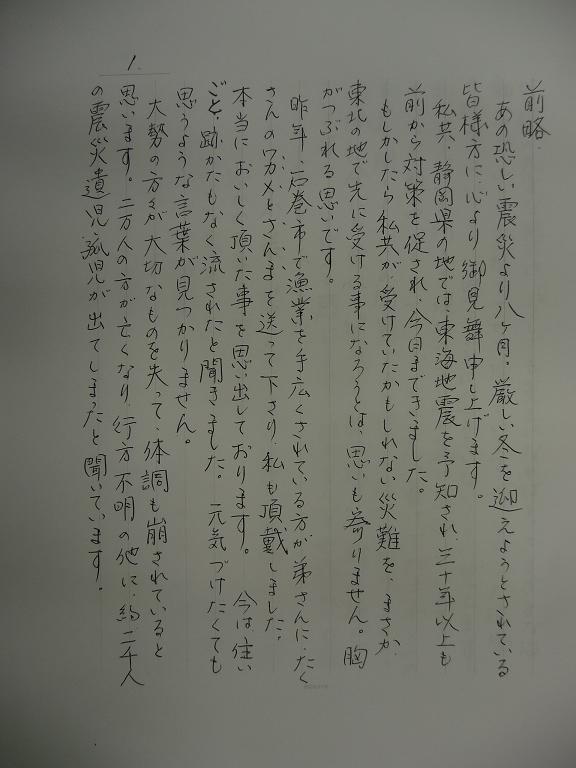 1.
前略.
あの恐しい震災より八ヶ月。厳しい冬を迎えようとされている
皆様方に、心より御見舞申し上げます。
私共、静岡県の地では、東海地震を予知され、三十年以上も
前から対策を促され、今日まできました。
もしかしたら私共が、受けていたかもしれない災難を、まさか、
東北の地で先に受ける事になろうとは、思いも寄りません。胸
がつぶれる思いです。
昨年、石巻市で漁業を手広くされている方が弟さんに、たく
さんのワカメとさんまを送って下さり、私も頂戴しました。
本当においしく頂いた事を思い出しております。 今は住い
ごと、跡かたもなく流されたと聞きました。 元気づけたくても
思うような言葉が見つかりません。
大勢の方々が大切なものを失って、体調も崩されていると
思います。二万人の方が亡くなり、行方不明の他に、約二千人
の震災遺児孤児が出てしまったと聞いています。